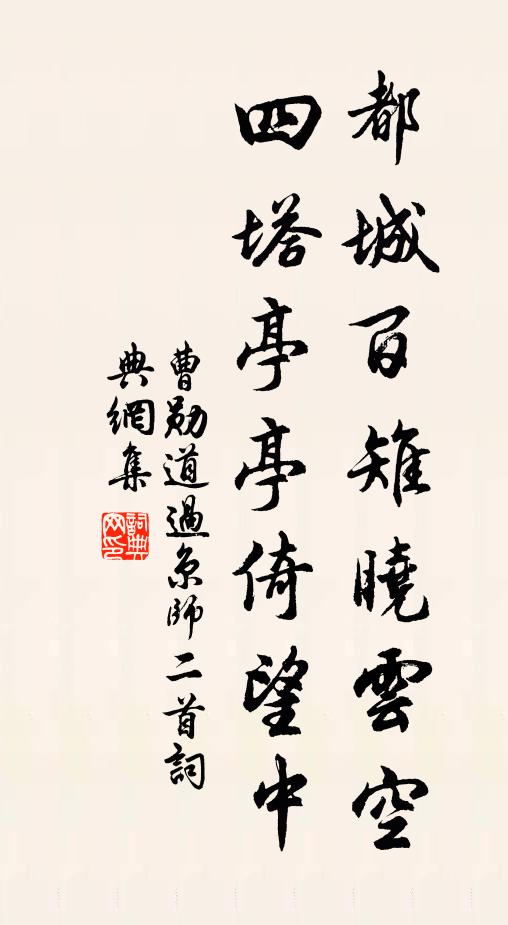 都城百雉曉雲空
四塔亭亭倚望中
曹勛道過京師二首詞
典網集
詞典網印